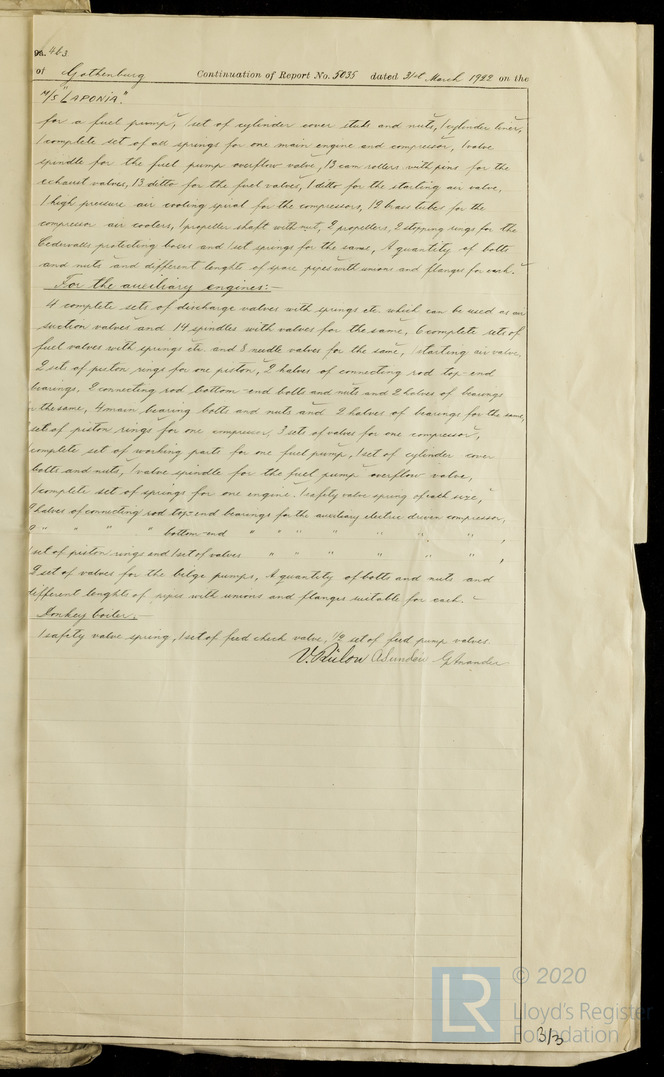 pn. 463
of Gothenburg Continuation of Report No. 5035 dated 31st March 1922 on the
M/S "LAPONIA".
for a fuel pump, 1 set of cylinder cover studs and nuts, 1 cylinder liner,
1 complete set of all springs for one main engine and compressor, 1 valve
spindle for the fuel pump overflow valve, 13 cam rollers with pins for the
exhaust valves, 13 ditto for the fuel valves, 1 ditto for the starting air valve,
1 high pressure air cooling spiral for the compressors, 12 brass tubes for the
compressor air coolers, 1 propeller shaft with nut, 2 propellers, 2 stopping rings for the
Cedervalls protecting boxes and 1 set springs for the same, A quantity of bolts
and nuts and different lenghts of spare pipes with unions and flanges for each.
For the auxiliary engines:-
4 complete sets of discharge valves with springs etc which can be used as
suction valves and 14 spindles with valves for the same, 6 complete sets of
fuel valves with springs etc and 8 needle valves for the same, 1 starting air valve,
2 sets of piston rings for one piston, 2 halves of connecting rod top-end
bearings, 2 connecting rod bottom-end bolts and nuts and 2 halves of bearings
for the same, 4 main bearing bolts and nuts and 2 halves of bearings for the same,
set of piston rings for one compressor, 3 sets of valves for one compressor,
complete set of working parts for one fuel pump, 1 set of cylinder cover
bolts and nuts, 1 valve spindle for the fuel pump overflow valve,
1 complete set of springs for one engine. 1 safety valve spring of each size,
2 halves of connecting rod top-end bearings for the auxiliary electric driven compressor,
2 " " " " bottom-end " " " " " " ,
1 set of piston rings and 1 set of valves " " " " " " ,
2 set of valves for the bilge pumps, A quantity of bolts and nuts and
different lenghts of pipes with unions and flanges suitable for each.
Donkey boiler.-
1 safety valve spring, 1 set of feed check valve, 1/2 set of feed pump valves.
© 2020
LR
Lloyd's Register
Foundation
3/3